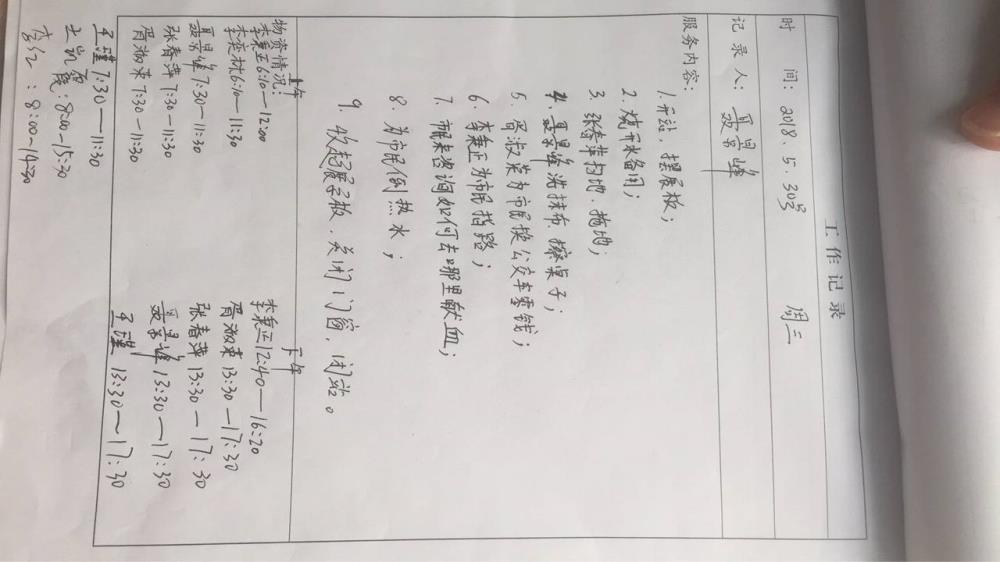 工作记录
时 间：2018.5.30号 周三
记录人：聂景峰
服务内容：
1.开站，摆展板；
2.烧开水备用；
3.张春萍扫地、拖地；
4.聂景峰洗抹布、擦桌子；
5.胥淑荣为市民换公交车零钱；
6.李秉正为市民指路；
7.市民来咨询如何去哪里献血；
8.为市民倒热水；
9.收起展示板，关闭门窗，闭站。
物资情况：上午
李秉正6:10—12:00
李奕材6:10—11:30
聂景峰7:30—11:30
张春萍7:30—11:30
胥淑荣7:30—11:30
王瑾7:30—11:30
下午
李秉正12:40—16:20
胥淑荣13:30—17:30
张春萍13:30—17:30
聂景峰13:30—17:30
王瑾13:30—17:30
：8:00-15:30
：8:00-14:30